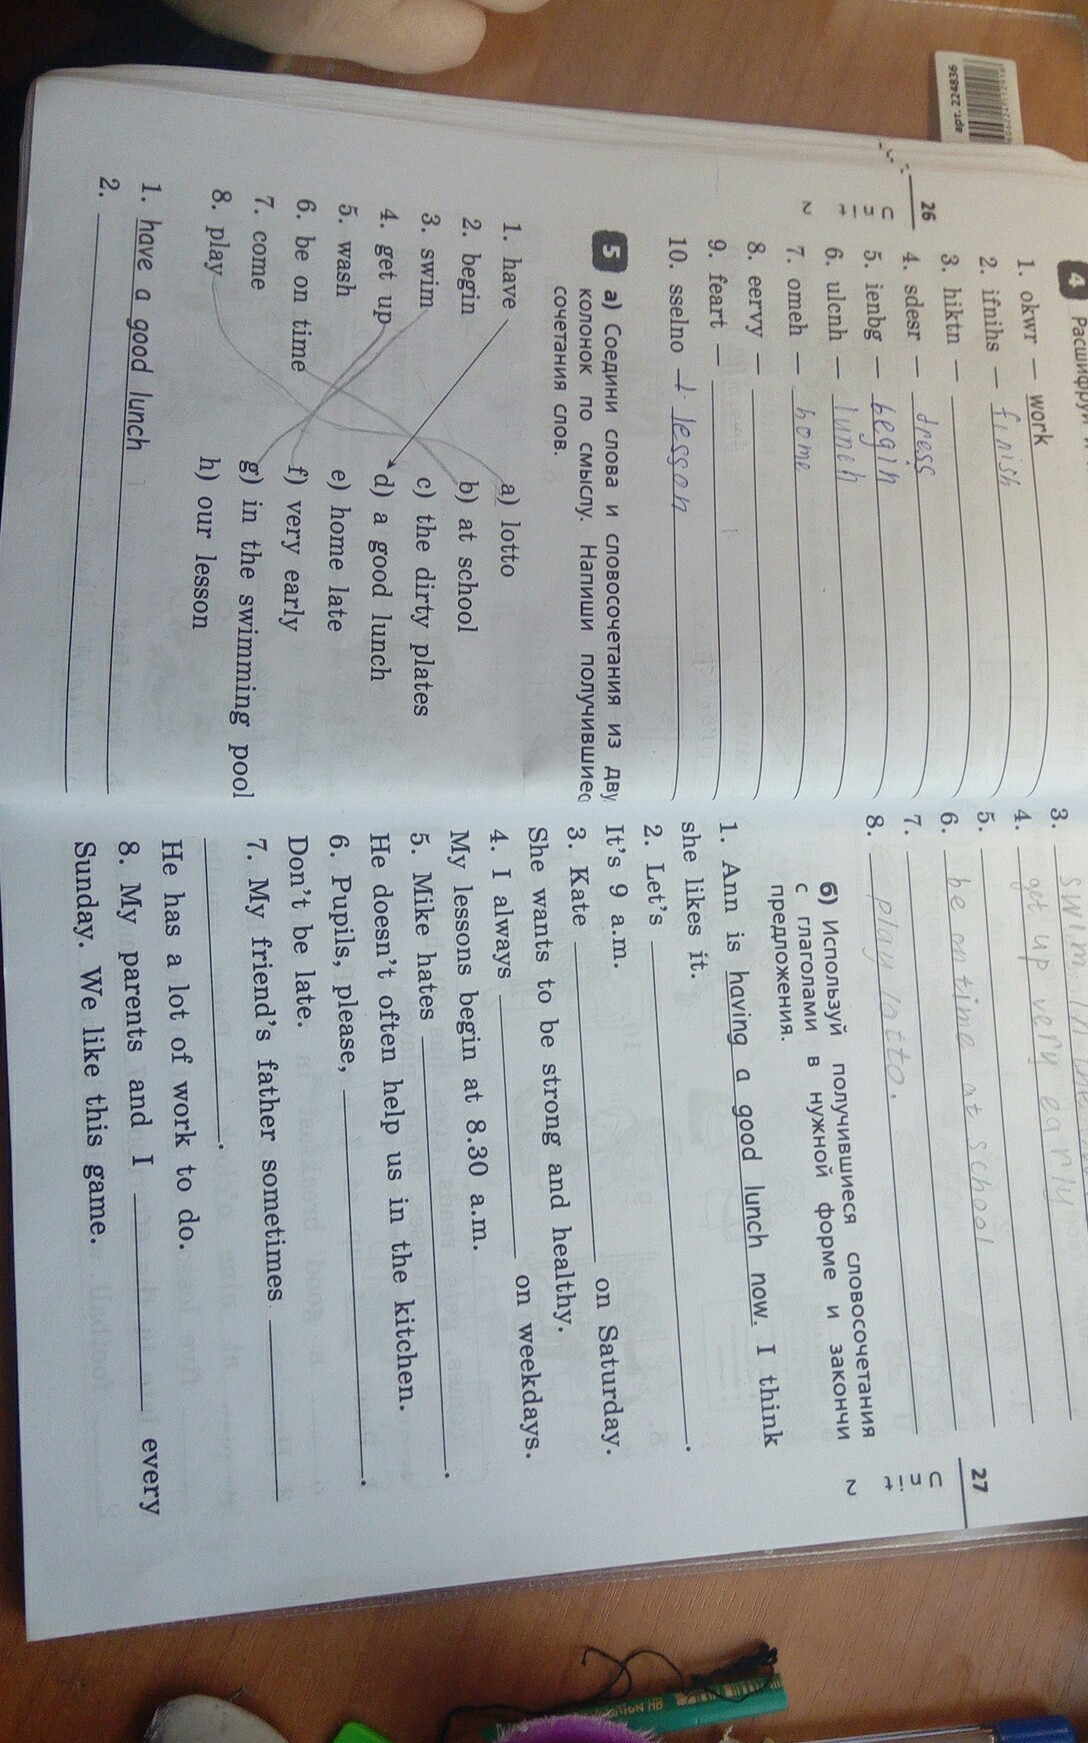 4 Расшифруй
1. okwr — work
2. ifnihs — finish
3. hiktn —
4. sdesr — dress
5. ienbg — begin
6. ulcnh — lunch
7. omeh — home
8. eervy —
9. feart —
10. sselno — lesson
26
5 а) Соедини слова и словосочетания из дву
колонок по смыслу. Напиши получившиес
сочетания слов.
1. have
2. begin
3. swim
4. get up
5. wash
6. be on time
7. come
8. play
a) lotto
b) at school
c) the dirty plates
d) a good lunch
e) home late
f) very early
g) in the swimming pool
h) our lesson
1. have a good lunch
2.
3. swim
4. get up very early
5.
6. be on time at school
7.
8. play lotto.
27
б) Используй получившиеся словосочетания
с глаголами в нужной форме и закончи
предложения.
1. Ann is having a good lunch now. I think
she likes it.
2. Let's .
It's 9 a.m.
3. Kate on Saturday.
She wants to be strong and healthy.
4. I always on weekdays.
My lessons begin at 8.30 a.m.
5. Mike hates .
He doesn't often help us in the kitchen.
6. Pupils, please, .
Don't be late.
7. My friend's father sometimes
.
He has a lot of work to do.
8. My parents and I every
Sunday. We like this game.
арт. 224836